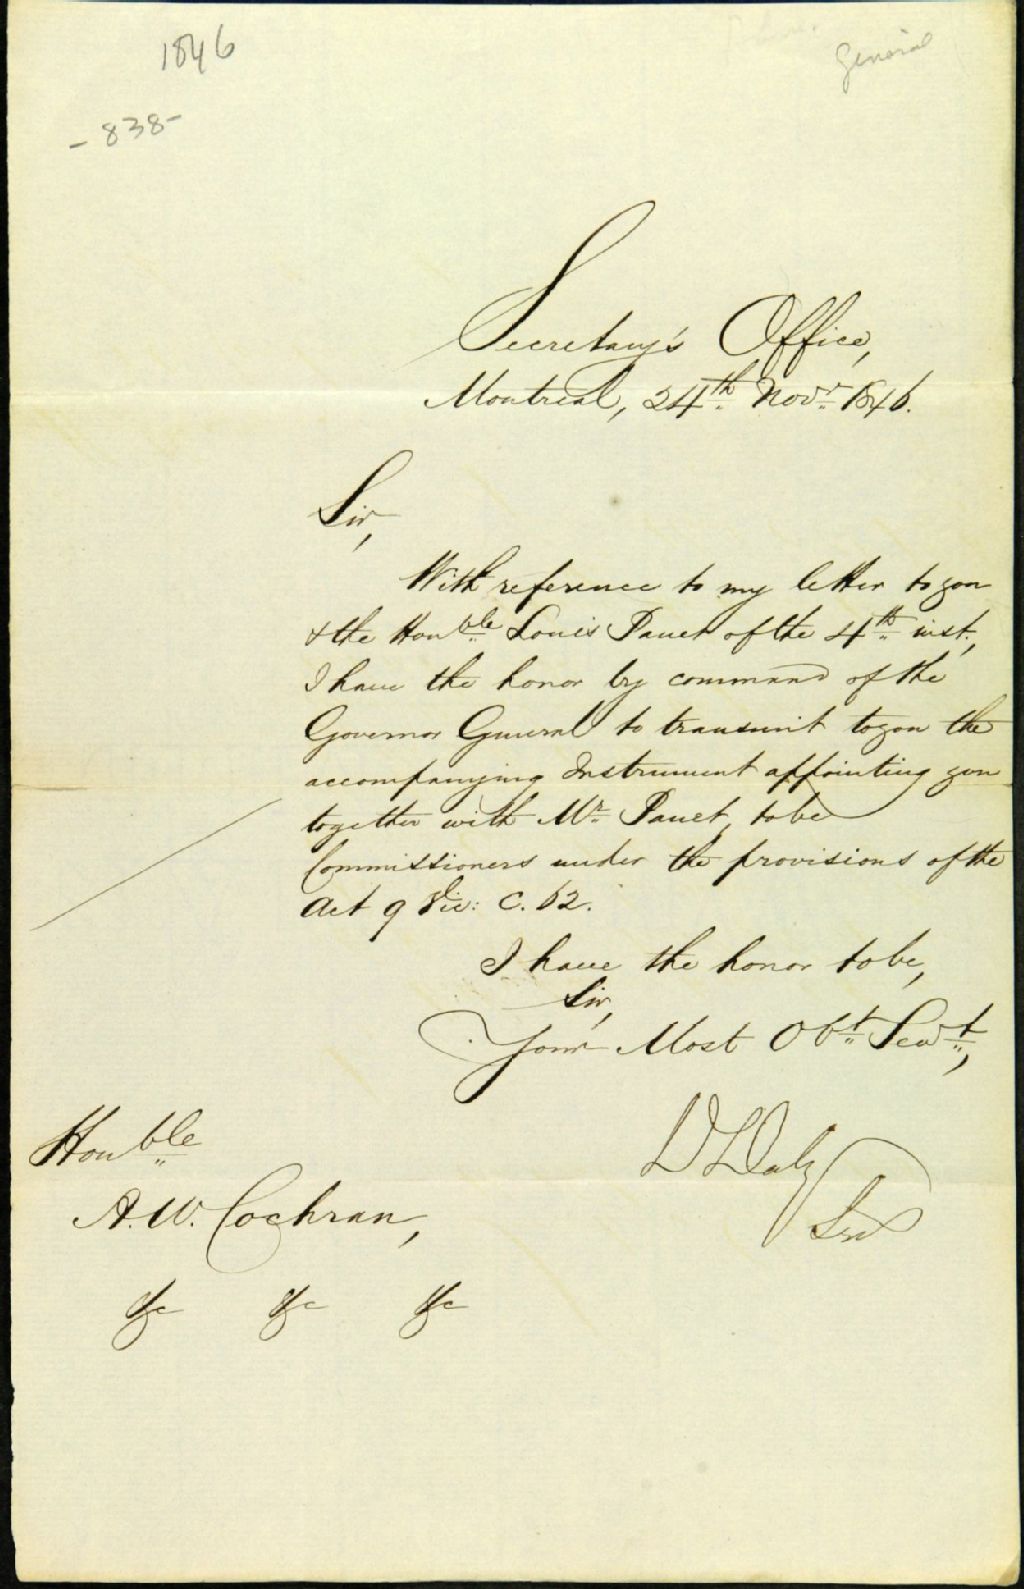 1846
General
- 838 -
Secretary's Office,
Montreal, 24th Novr 1846.
Sir,
With reference to my letter to you
& the Honble Louis Panet of the 4th inst,
I have the honor by command of the
Governor General to transmit to you the
accompanying Instrument appointing you
together with Mr Panet, to be
Commissioners under the provisions of the
Act 9 Vic: C. 62.
I have the honor to be,
Sir,
Your Most Obt Servt,
D Daly
Sec
Honble
A. W. Cochran,
&c &c &c